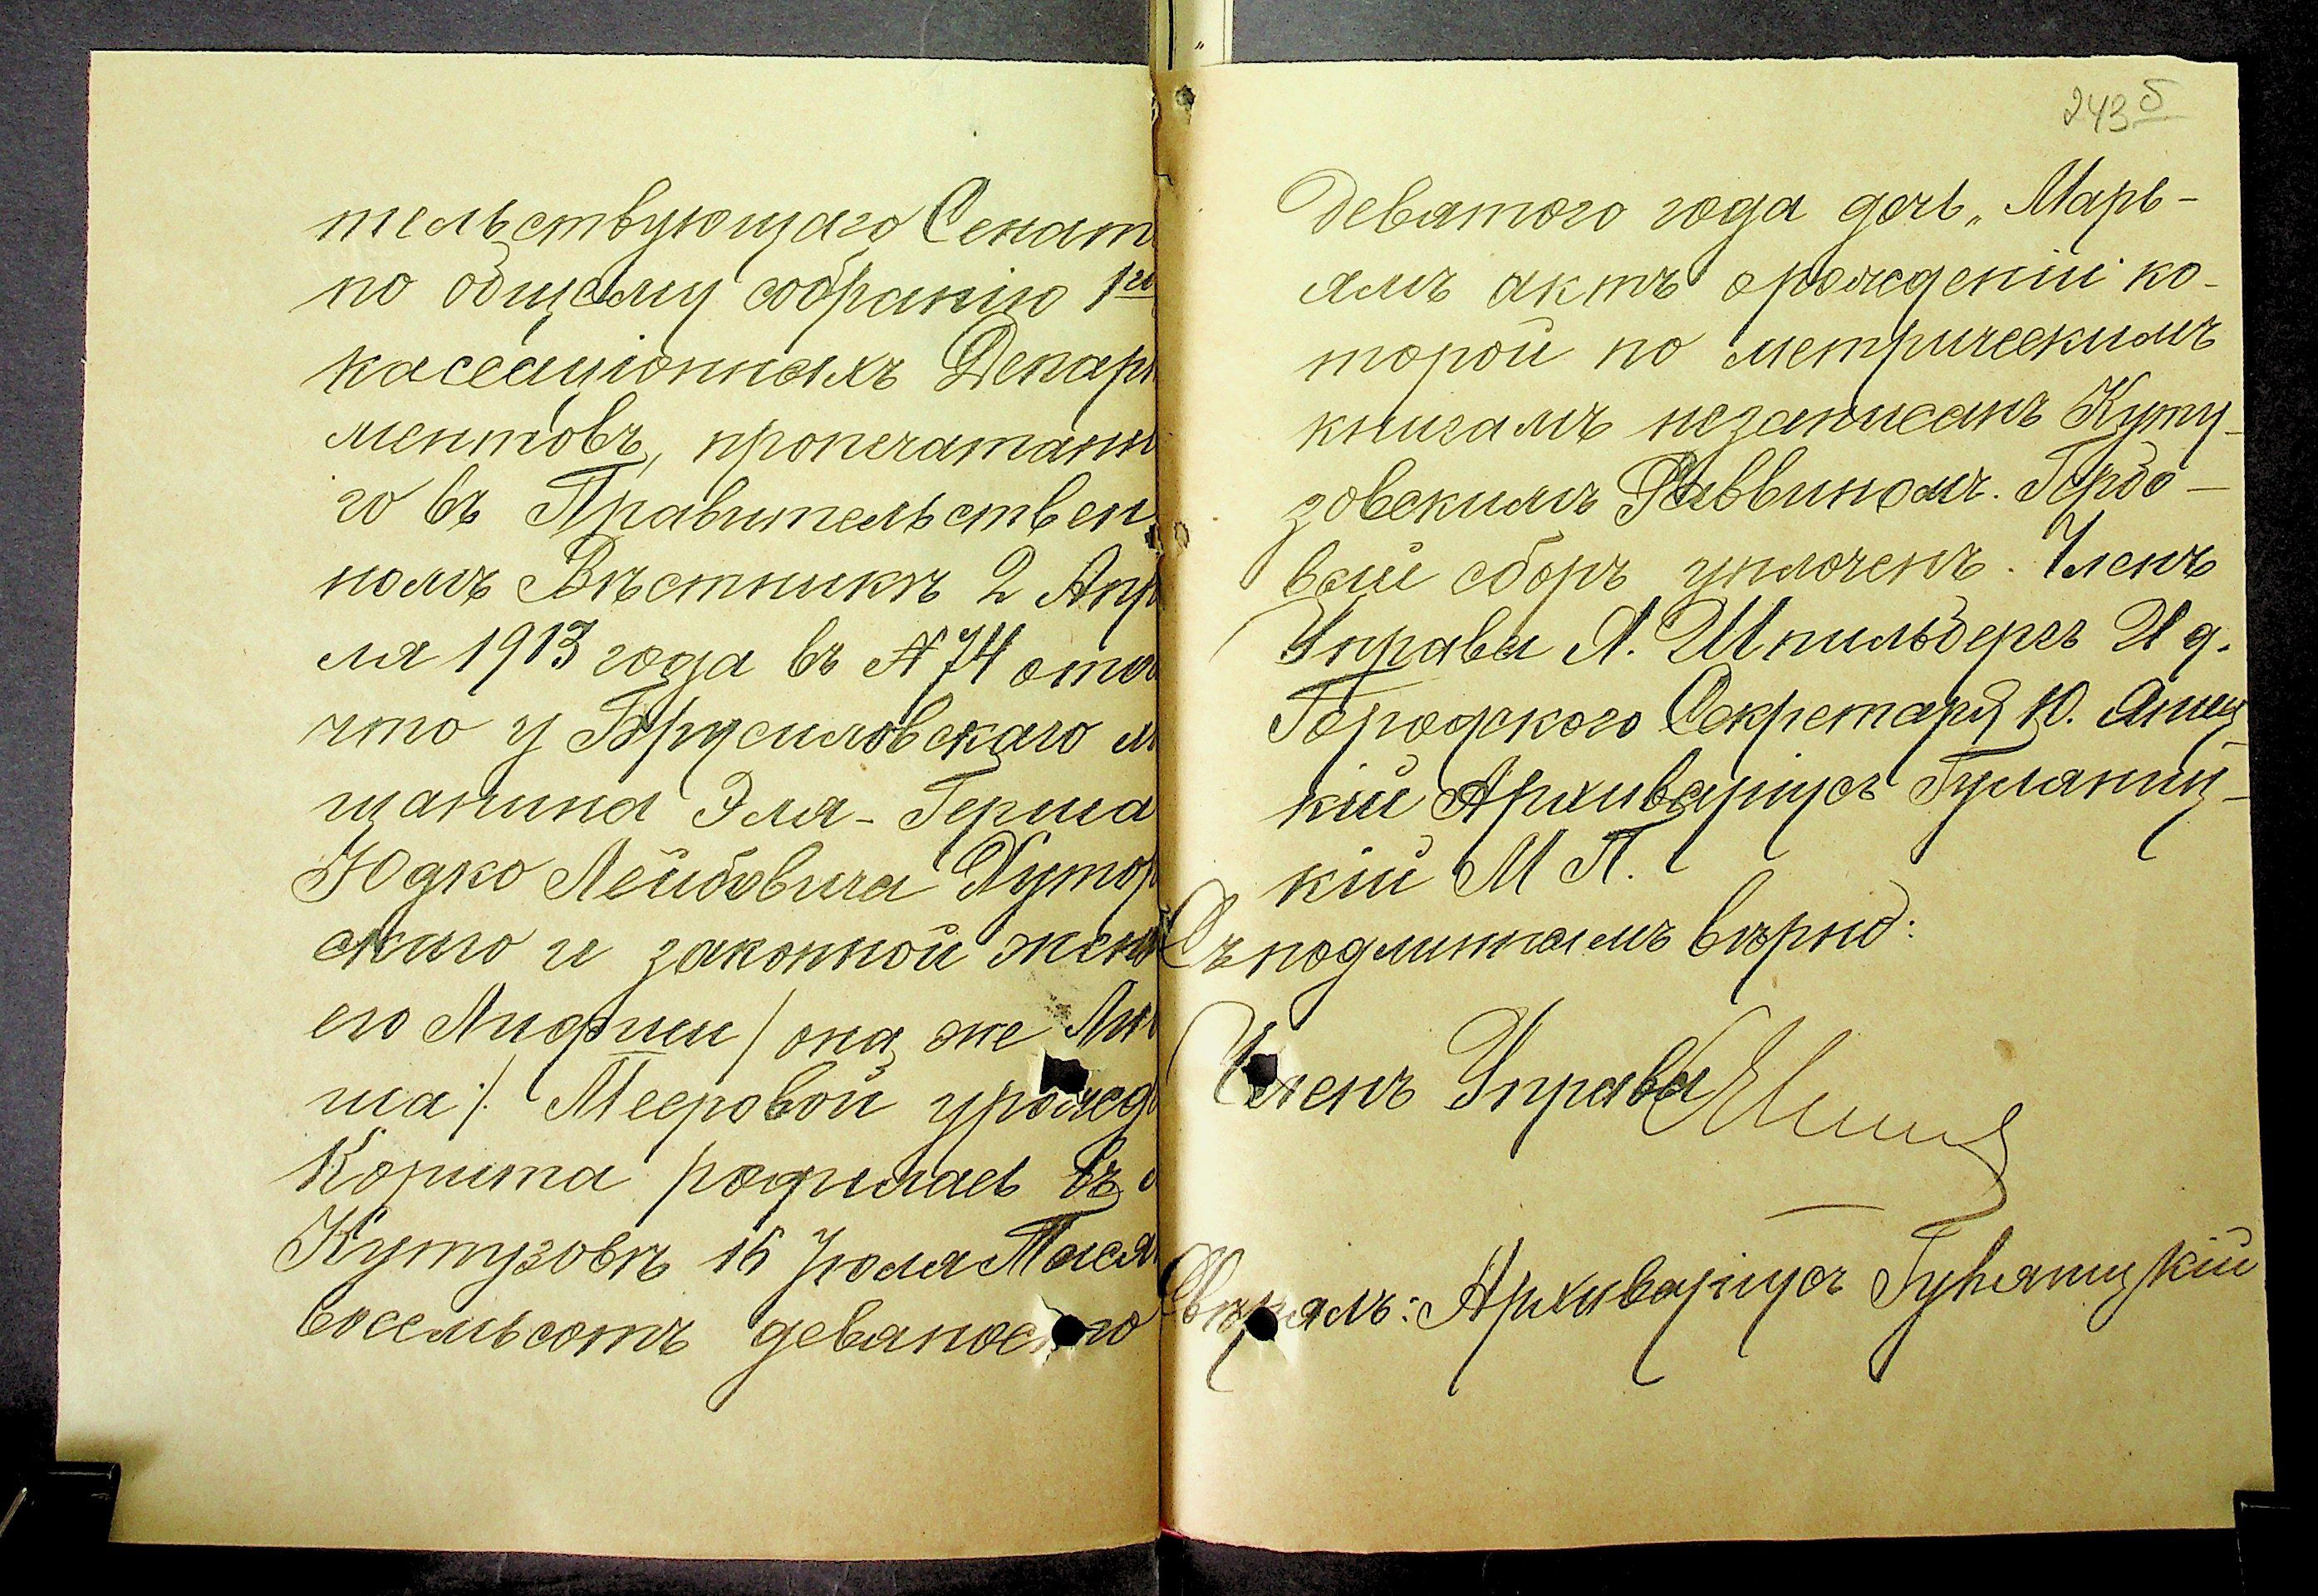 тельствующаго Сенат
по общему собранію 1го
кассаціонныхъ Депар
ментовъ, пропечатанн
го въ Правительствен
номъ Вѣстникѣ 2 Апр
ля 1913 года въ № 74 ст
что у Брусиловскаго м
щанина Эля-Герша
Юдко Лейбовича Хутор
скаго и законной жен
его / она же
ша /. Мееровой урожед
Корита родилась въ
Кутузовѣ 15 Іюля
восемьсотъ девяносто
243 б
девятого года дочь „Марь-
ямъ актъ о рожденіи ко-
торой по метрическимъ
книгамъ незаписанъ Куту-
зовскимъ Раввиномъ. Гербо-
вый сборъ уплоченъ. Членъ
Управы Л. Шпильбергъ И д.
Городского Секретаря Ю.
кій Архиваріусъ Гуляниц-
кій М П.
Съ подлиннымъ вѣрно:
Членъ Управы
Свѣрялъ: Архиваріусъ Гуляницкій